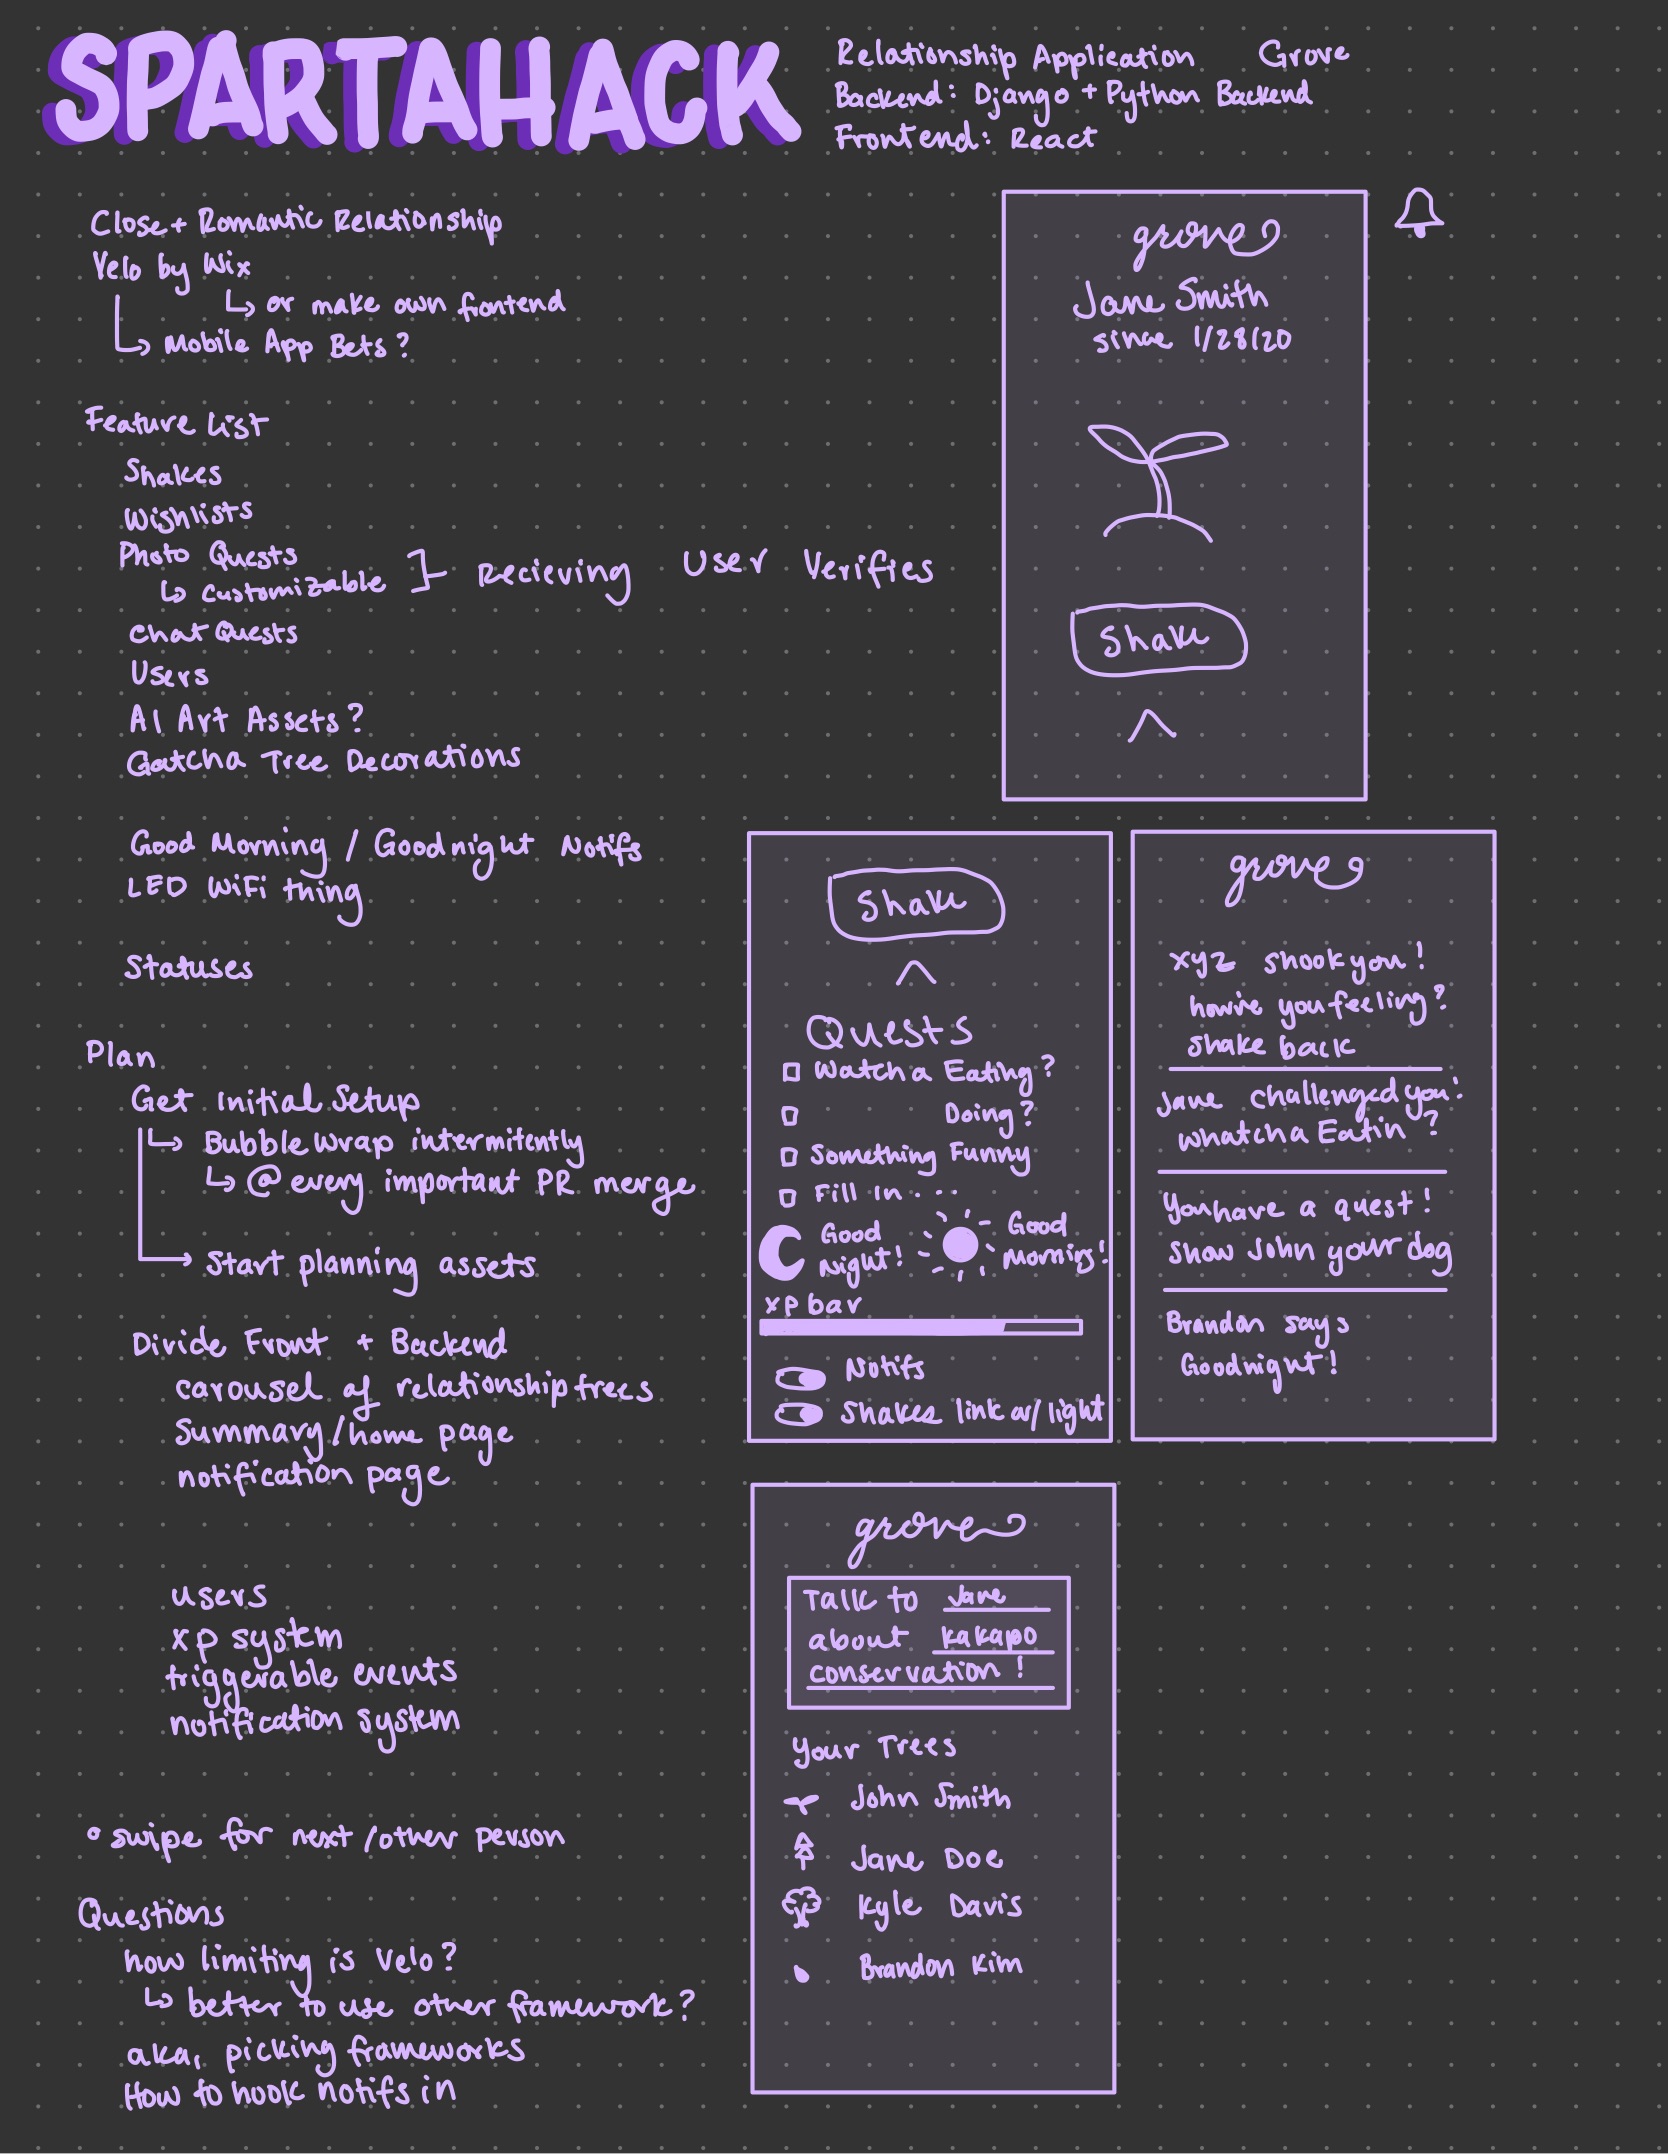 SPARTAHACK
Relationship Application Grove
Backend: Django + Python Backend
Frontend: React
Close + Romantic Relationship
Velo by Wix
↳ or make own frontend
↳ Mobile App Bets?
Feature List
Shakes
Wishlists
Photo Quests
↳ customizable } Recieving User Verifies
Chat Quests
Users
AI Art Assets?
Gatcha Tree Decorations
Good Morning / Goodnight Notifs
LED WiFi thing
Statuses
Plan
Get Initial Setup
↳ Bubble wrap intermitently
↳ @ every important PR merge
→ Start planning assets
Divide Front + Backend
carousel of relationship trees
Summary/home page
notification page
users
xp system
triggerable events
notification system
• swipe for next/other person
Questions
how limiting is Velo?
↳ better to use other framework?
aka, picking frameworks
How to hook notifs in
grove
Jane Smith
since 1/28/20
Shake
Shake
Quests
Watcha Eating?
Doing?
Something Funny
Fill in....
Good Night!
Good Morning!
xp bar
Notifs
Shakes link w/ light
grove
xyz shook you!
how're you feeling?
shake back
Jane challenged you:
whatcha Eatin?
You have a quest!
Show John your dog
Brandon says
Goodnight!
grove
Talk to Jane
about kakapo
conservation!
Your Trees
John Smith
Jane Doe
Kyle Davis
Brandon Kim